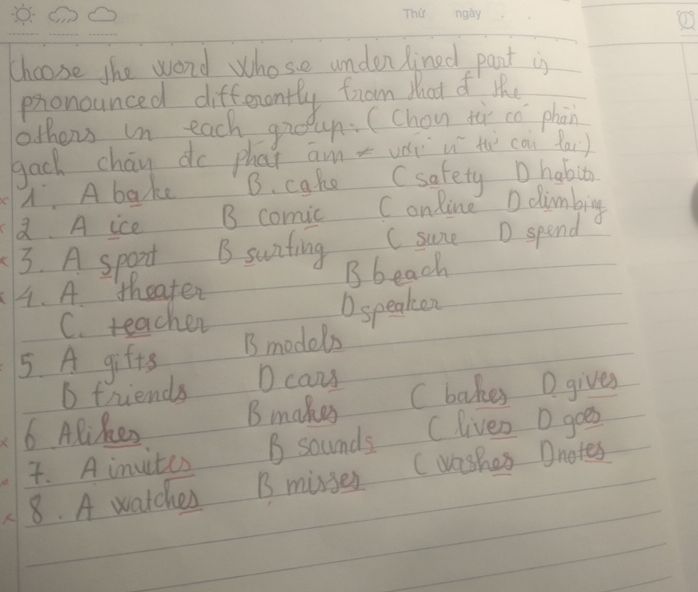 Thứ ngày
Choose the word whose underlined part is
pronounced differently from that of the
others in each group. (Chọn từ có phần
gạch chân đc phát âm với từ còn lại)
1. A bake B. cake C safety D habits
2. A ice B comic C online D climbing
3. A sport B surfing C sure D spend
4. A. theater B beach
C. teacher D speaker
5. A gifts B models
D friends D cars
6 A likes B makes C bakes D gives
7. A invites B sounds C lives D goes
8. A watches B misses C washes D notes